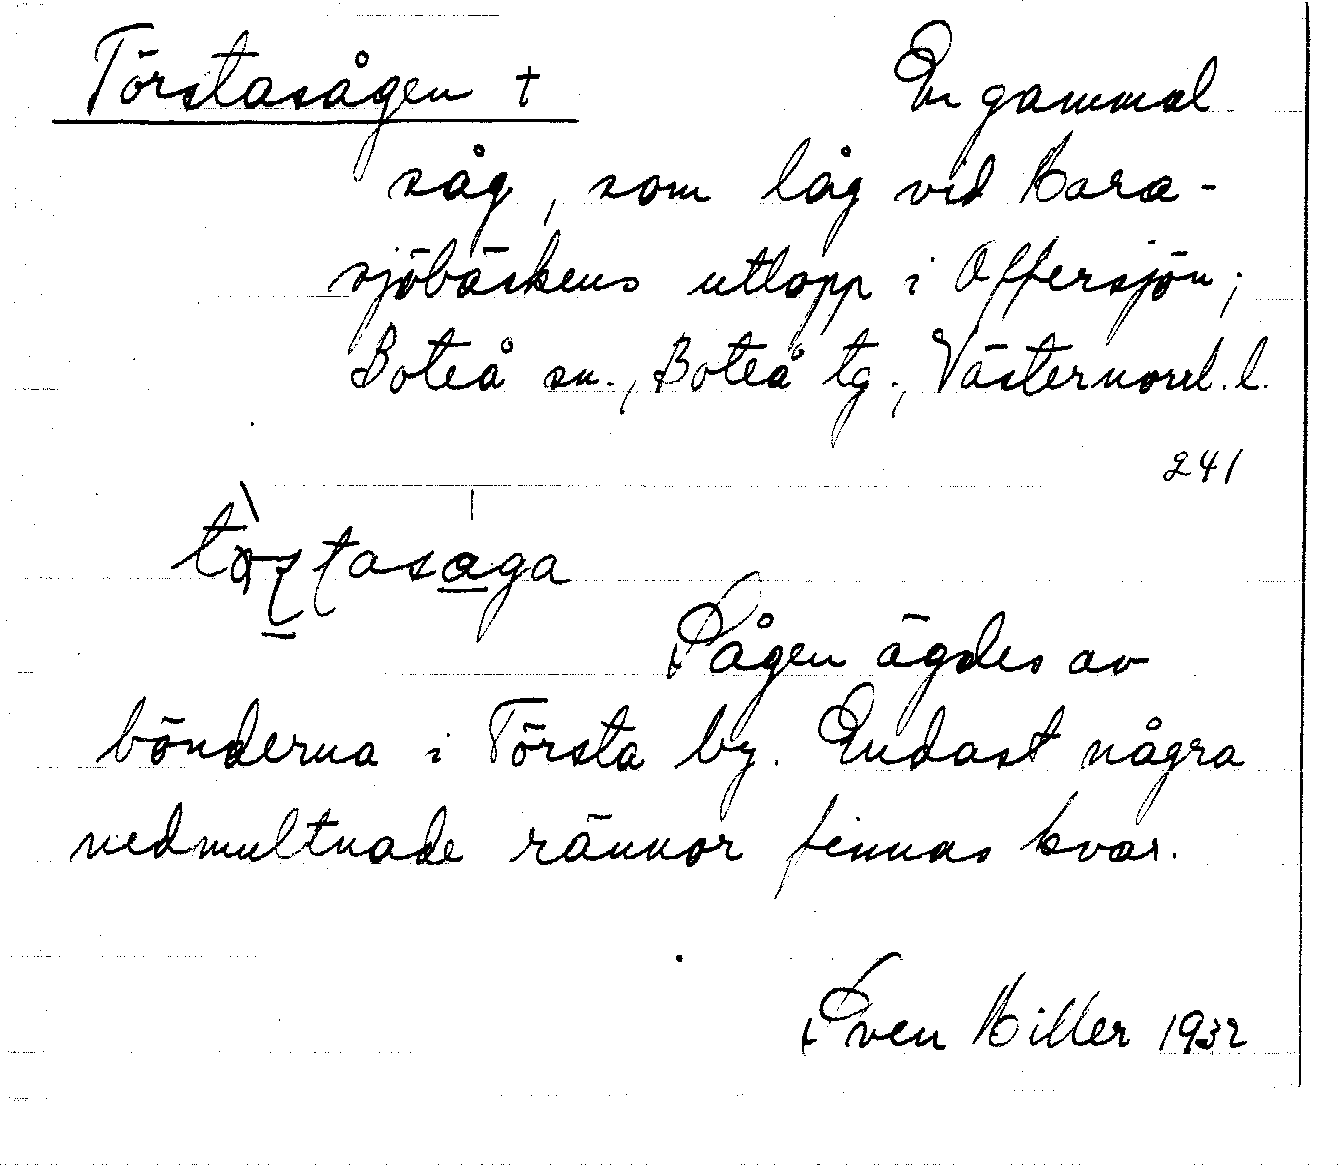 Törstasågen †
En gammal
såg, som låg vid Hara-
sjöbäckens utlopp i Offersjön;
Boteå sn., Boteå tg., Västernorrl. l.
241
Sågen ägdes av
bönderna i Törsta by. Endast några
nedmultnade rännor finnas kvar.
Sven Hiller 1932